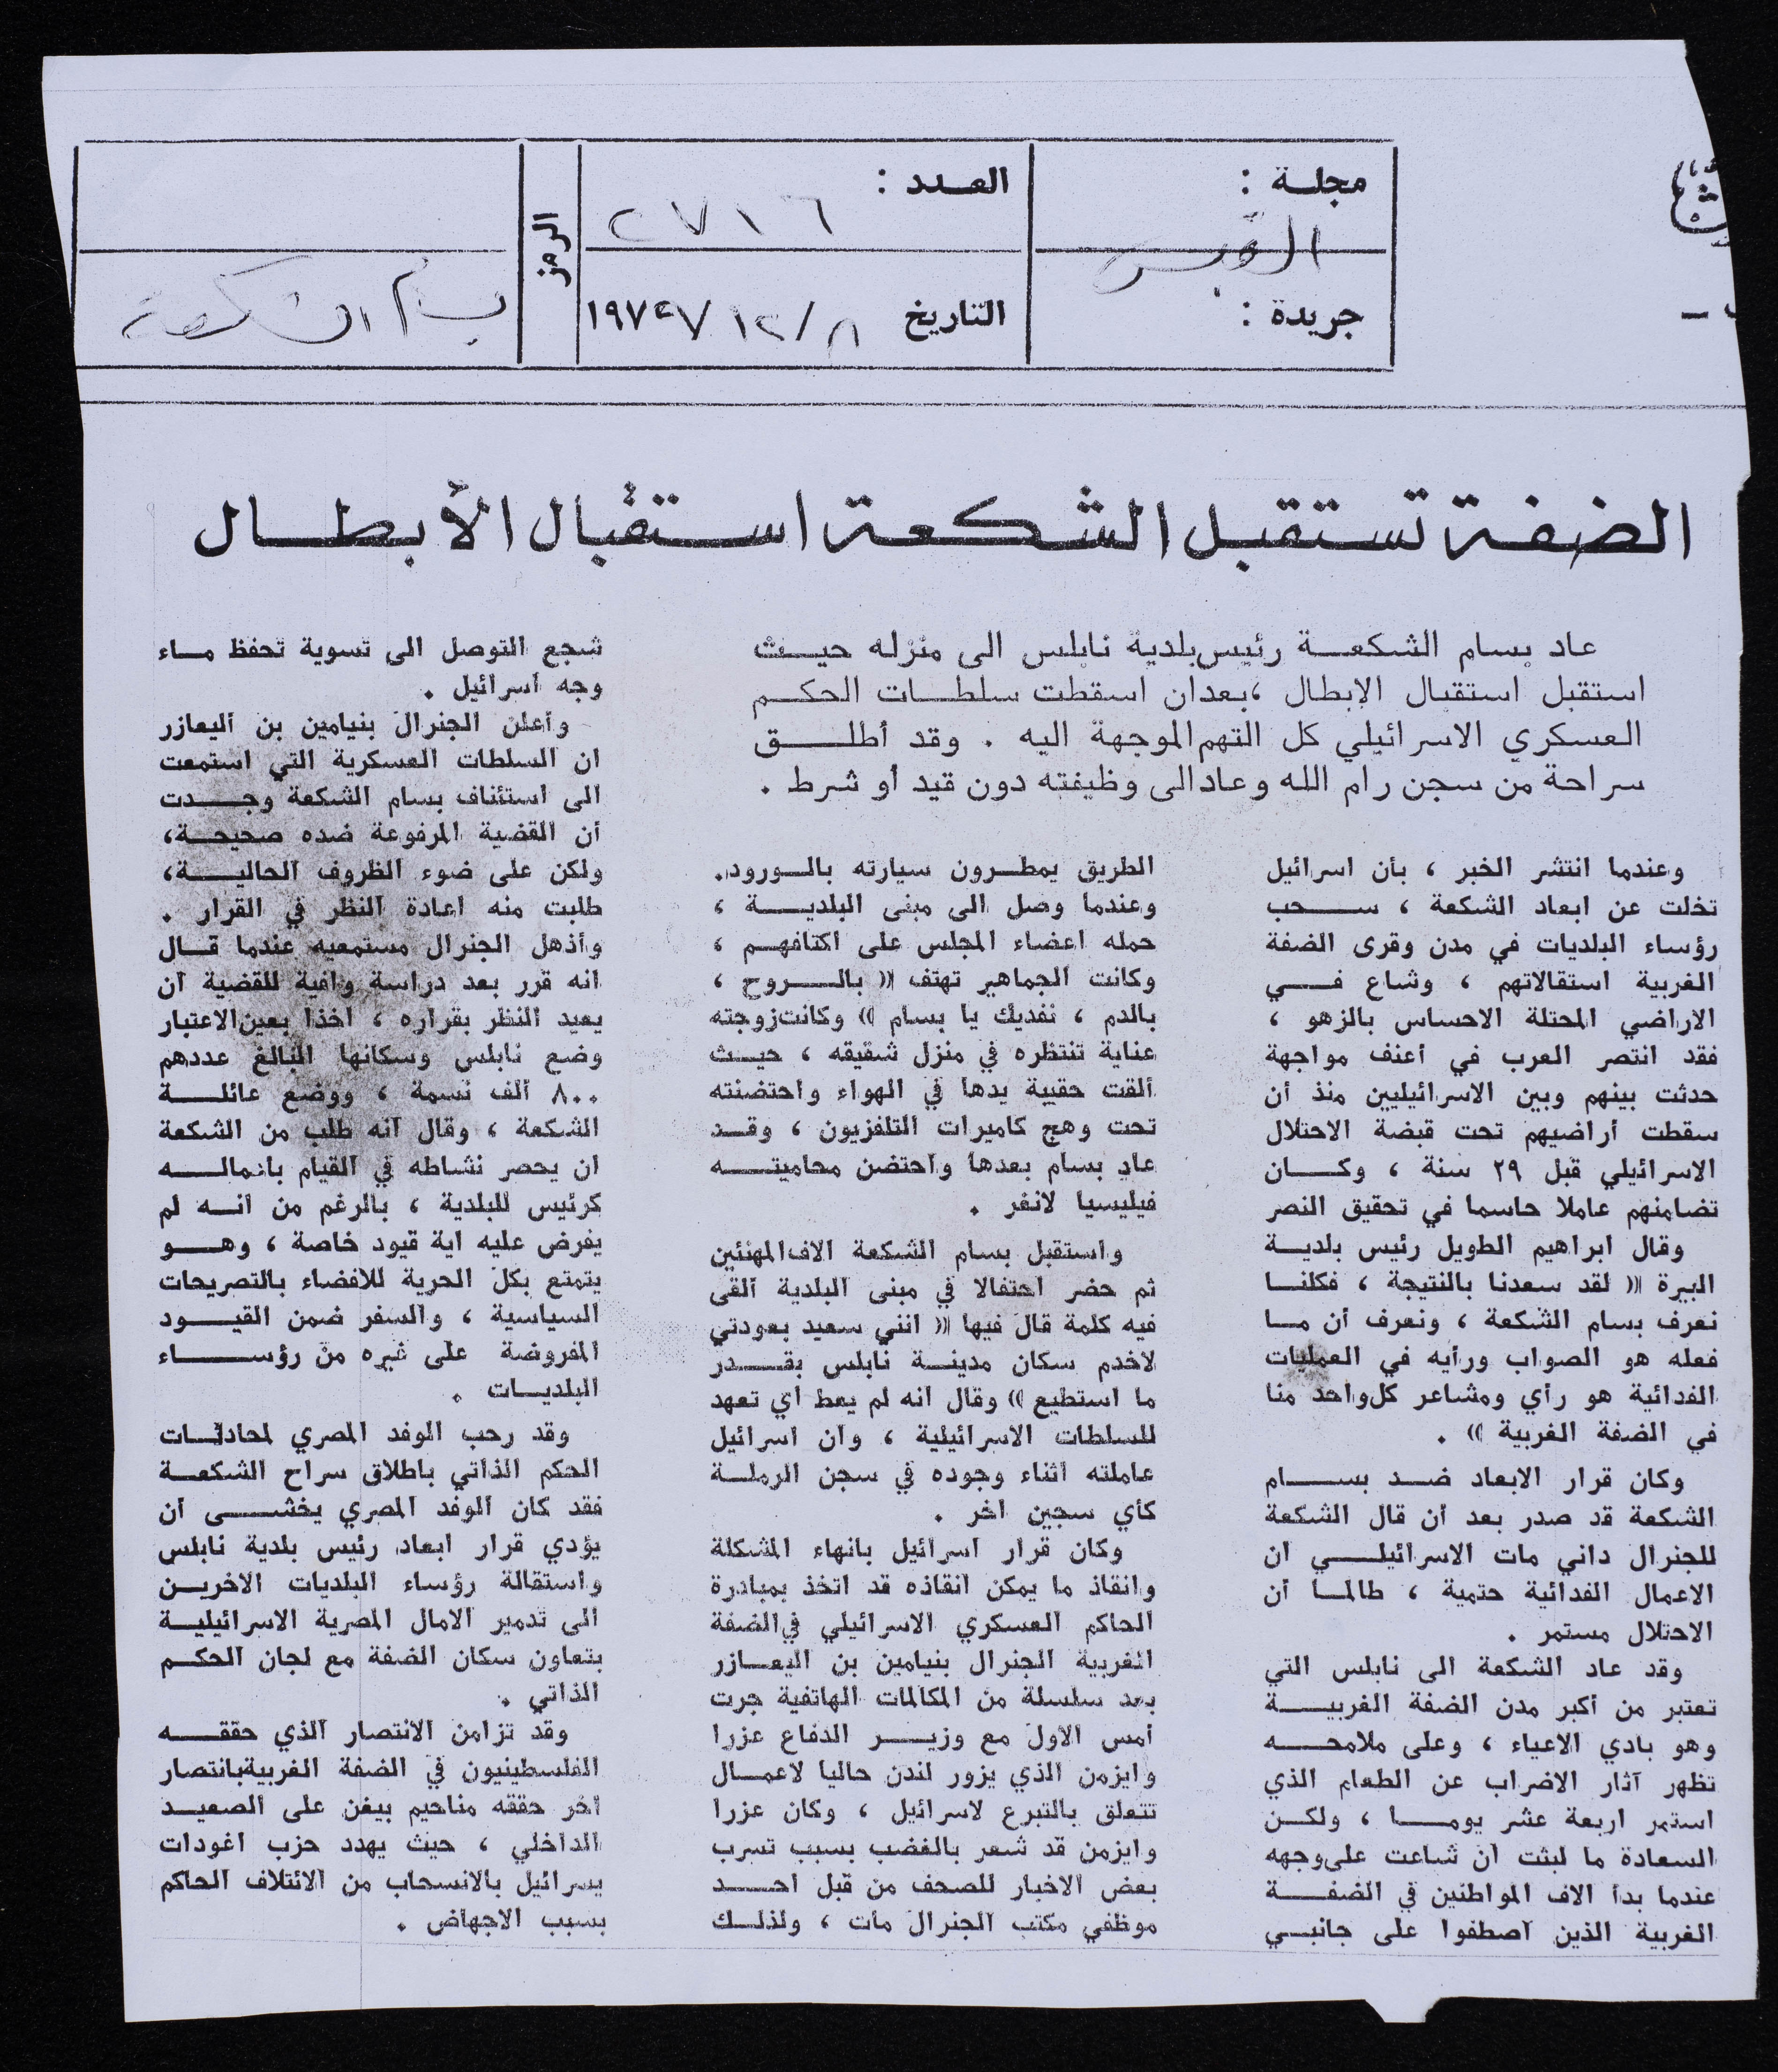 مجلـة :
القبس
جريدة :
العـدد :
٢٧١٦
التاريخ ٨/ ١٢/ ١٩٧
الرمز
بسام الشكعة
الضفة تستقبل الشكعة استقبال الأبطال
عاد بسام الشكعة رئيس بلدية نابلس الى منزله حيث
استقبل استقبال الابطال ، بعد ان اسقطت سلطات الحكم
العسكري الاسرائيلي كل التهم الموجهة اليه . وقد أطلق
سراحة من سجن رام الله وعاد الى وظيفته دون قيد أو شرط .
وعندما انتشر الخبر ، بأن اسرائيل
تخلت عن ابعاد الشكعة ، سحب
رؤساء البلديات في مدن وقرى الضفة
الغربية استقالاتهم ، وشاع في
الاراضي المحتلة الاحساس بالزهو ،
فقد انتصر العرب في أعنف مواجهة
حدثت بينهم وبين الاسرائيليين منذ أن
سقطت أراضيهم تحت قبضة الاحتلال
الاسرائيلي قبل ٢٩ سنة ، وكان
تضامنهم عاملا حاسما في تحقيق النصر
وقال ابراهيم الطويل رئيس بلدية
البيرة (( لقد سعدنا بالنتيجة ، فكلنا
نعرف بسام الشكعة ، ونعرف أن ما
فعله هو الصواب ورأيه في العمليات
الفدائية هو رأي ومشاعر كل واحد منا
في الضفة الغربية )) .
وكان قرار الابعاد ضد بسام
الشكعة قد صدر بعد أن قال الشكعة
للجنرال داني مات الاسرائيلي ان
الاعمال الفدائية حتمية ، طالما أن
الاحتلال مستمر .
وقد عاد الشكعة الى نابلس التي
تعتبر من أكبر مدن الضفة الغربية
وهو بادي الاعياء ، وعلى ملامحه
تظهر آثار الاضراب عن الطعام الذي
استمر اربعة عشر يوما ، ولكن
السعادة ما لبثت أن شاعت على وجهه
عندما بدأ الاف المواطنين في الضفة
الغربية الذين اصطفوا على جانبي
الطريق يمطرون سيارته بالورود.
وعندما وصل الى مبنى البلدية ،
حمله اعضاء المجلس على اكتافهم ،
وكانت الجماهير تهتف (( بالروح ،
بالدم ، نفديك يا بسام )) وكانت زوجته
عناية تنتظره في منزل شقيقه ، حيث
ألقت حقيبة يدها في الهواء واحتضنته
تحت وهج كاميرات التلفزيون ، وقد
عاد بسام بعدها واحتضن محاميته
فيليسيا لانغر .
واستقبل بسام الشكعة الاف المهنئين
ثم حضر احتفالا في مبنى البلدية ألقى
فيه كلمة قال فيها (( انني سعيد بعودتي
لاخدم سكان مدينة نابلس بقدر
ما استطيع )) وقال انه لم يعط أي تعهد
للسلطات الاسرائيلية ، وأن اسرائيل
عاملته أثناء وجوده في سجن الرملة
كأي سجين اخر .
وكان قرار اسرائيل بانهاء المشكلة
وانقاذ ما يمكن انقاذه قد اتخذ بمبادرة
الحاكم العسكري الاسرائيلي في الضفة
الغربية الجنرال بنيامين بن اليعازر
بعد سلسلة من المكالمات الهاتفية جرت
أمس الاول مع وزير الدفاع عزرا
وايزمن الذي يزور لندن حاليا لاعمال
تتعلق بالتبرع لاسرائيل ، وكان عزرا
وايزمن قد شعر بالغضب بسبب تسرب
بعض الاخبار للصحف من قبل احد
موظفي مكتب الجنرال مات ، ولذلك
شجع التوصل الى تسوية تحفظ ماء
وجه اسرائيل .
وأعلن الجنرال بنيامين بن اليعازر
ان السلطات العسكرية التي استمعت
الى استئناف بسام الشكعة وجدت
أن القضية المرفوعة ضده صحيحة،
ولكن على ضوء الظروف الحالية،
طلبت منه اعادة النظر في القرار .
وأذهل الجنرال مستمعيه عندما قال
انه قرر بعد دراسة وافية للقضية أن
يعيد النظر بقراره ، اخذا بعين الاعتبار
وضع نابلس وسكانها البالغ عددهم
٨٠٠ ألف نسمة ، ووضع عائلة
الشكعة ، وقال أنه طلب من الشكعة
ان يحصر نشاطه في القيام باعماله
كرئيس للبلدية ، بالرغم من أنه لم
يفرض عليه اية قيود خاصة ، وهو
يتمتع بكل الحرية للافضاء بالتصريحات
السياسية ، والسفر ضمن القيود
المفروضة على غيره من رؤساء
البلديات .
وقد رحب الوفد المصري لمحادثات
الحكم الذاتي باطلاق سراح الشكعة
فقد كان الوفد المصري يخشى أن
يؤدي قرار ابعاد رئيس بلدية نابلس
واستقالة رؤساء البلديات الاخرين
الى تدمير الامال المصرية الاسرائيلية
بتعاون سكان الضفة مع لجان الحكم
الذاتي .
وقد تزامن الانتصار الذي حققه
الفلسطينيون في الضفة الغربية بانتصار
اخر حققه مناحيم بيغن على الصعيد
الداخلي ، حيث يهدد حزب اغودات
يسرائيل بالانسحاب من الائتلاف الحاكم
بسبب الاجهاض .